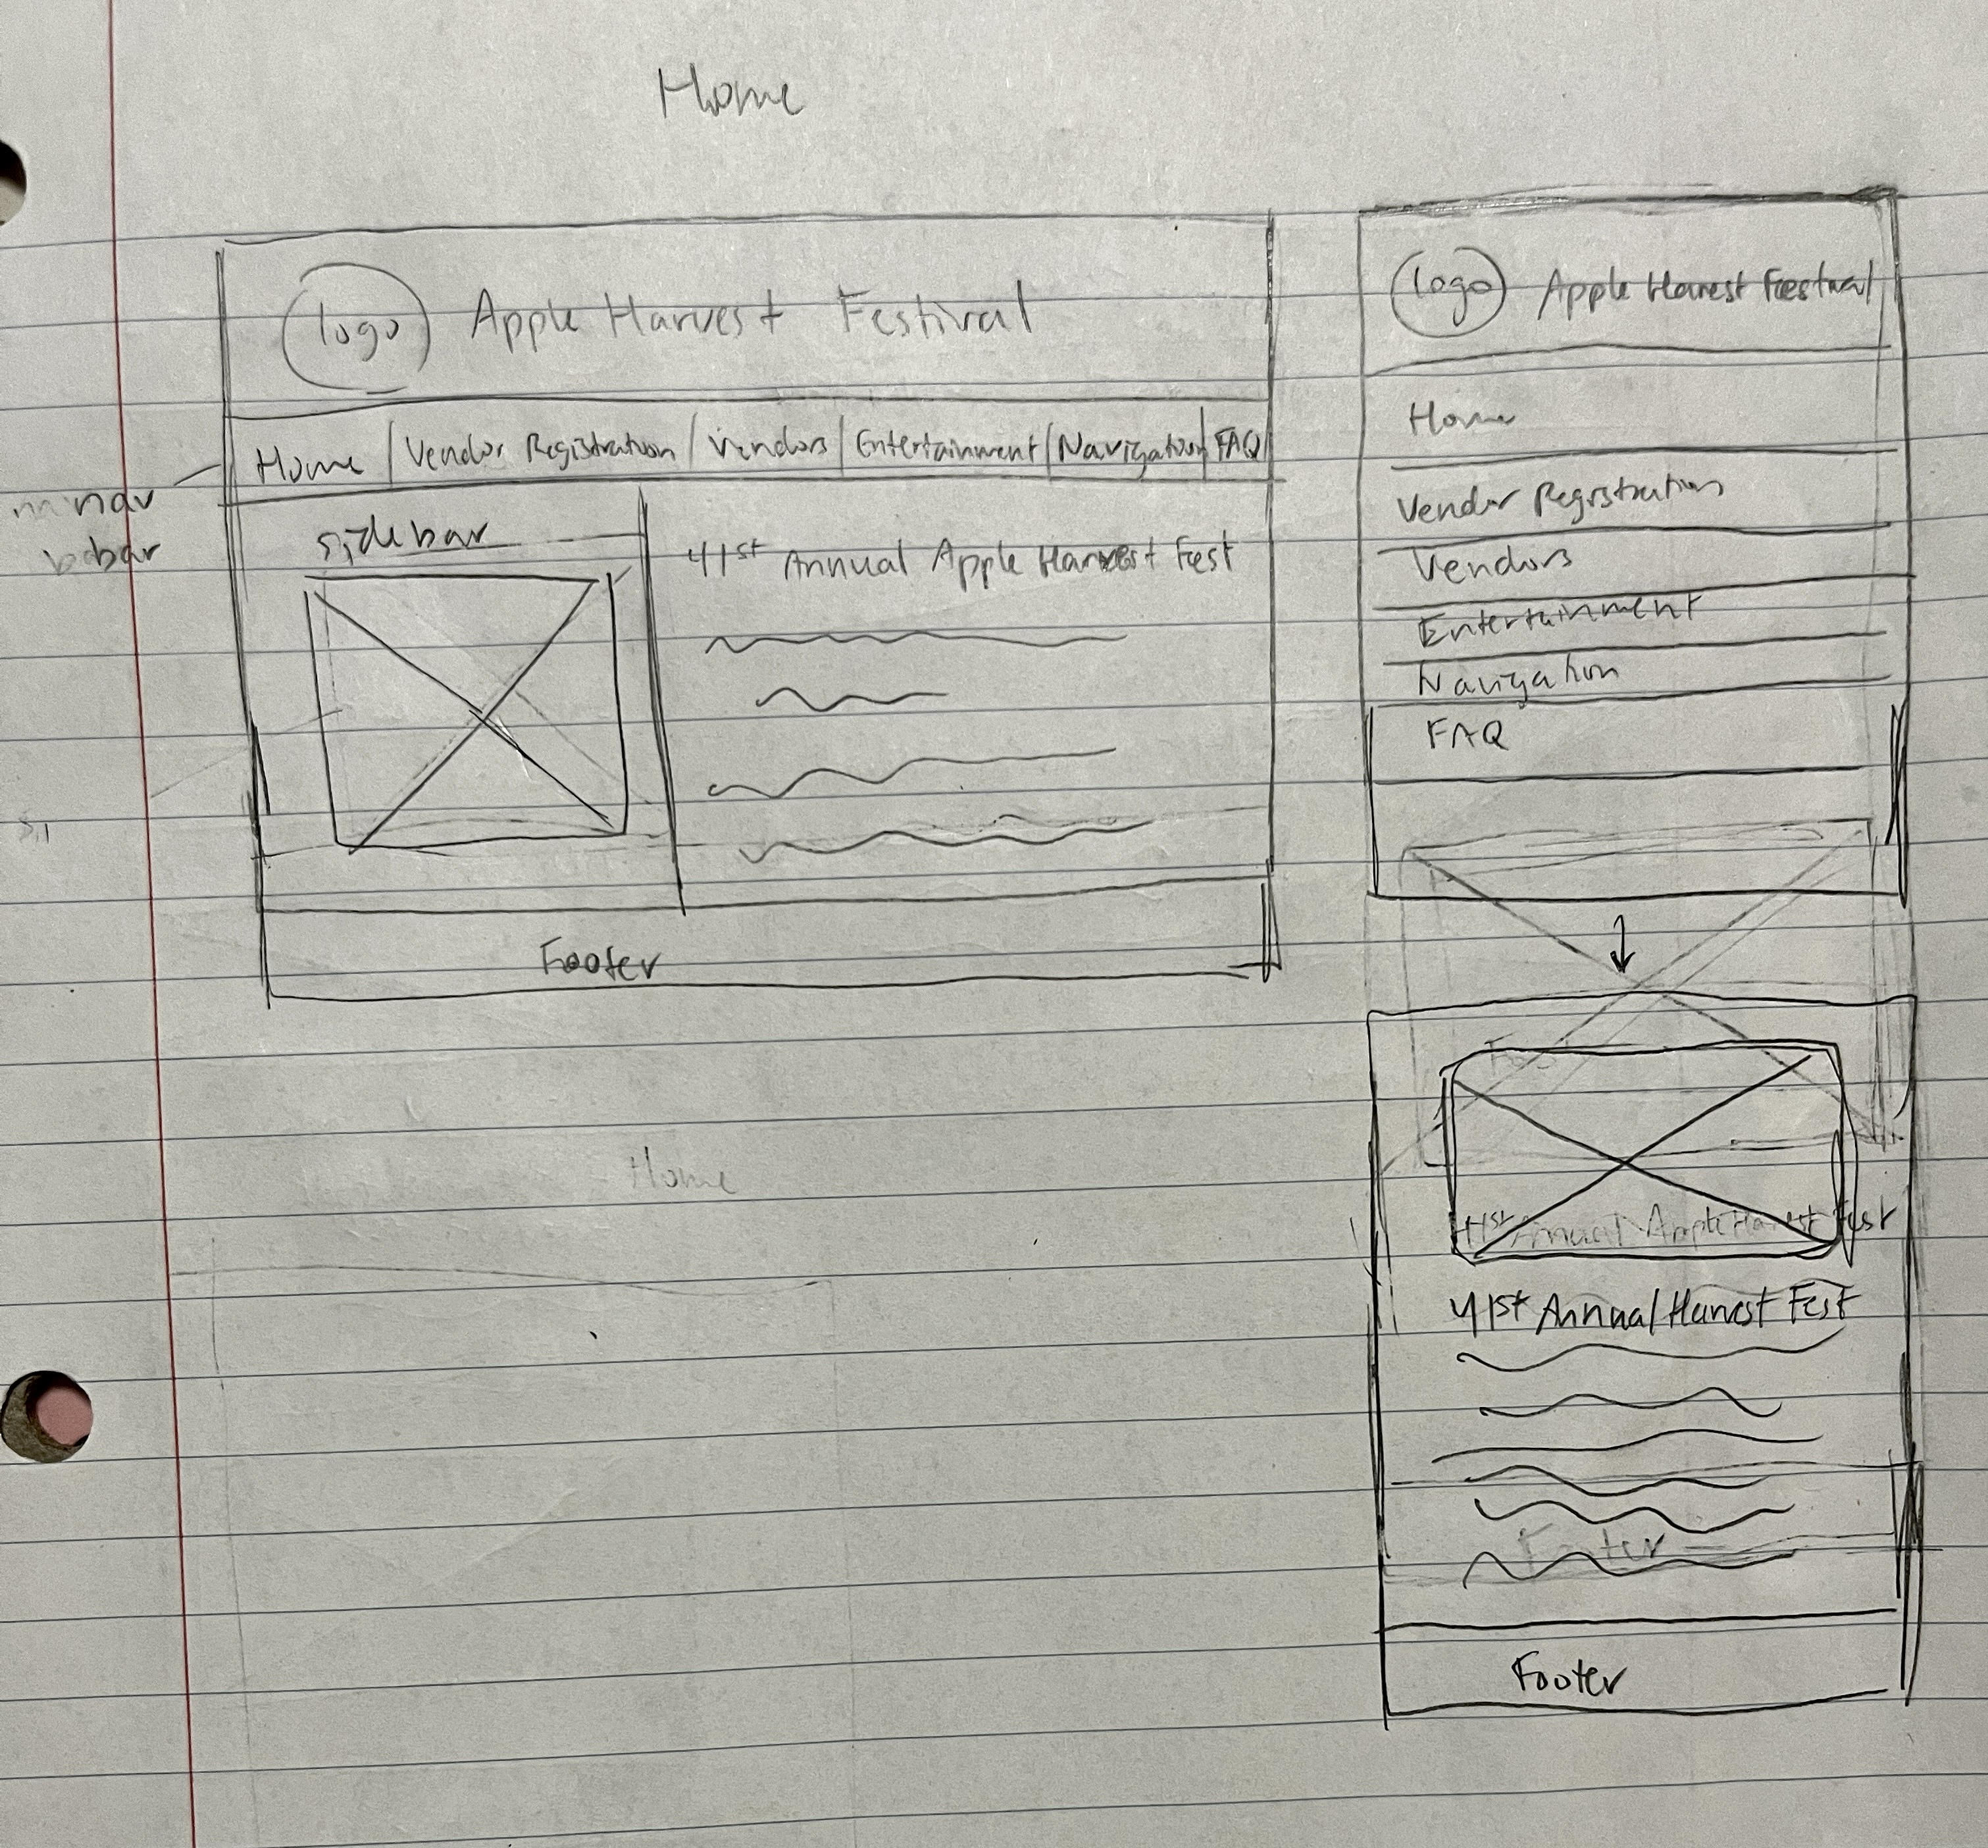 Home
logo Apple Harvest Festival
Home / Vendor Registration / Vendors / Entertainment / Navigation FAQ
nav
bar
sidebar
41st Annual Apple Harvest Fest
Footer
Home
logo Apple Harvest Festival
Home
Vendor Registration
Vendors
Entertainment
Navigation
FAQ
41st Annual Apple Harvest Fest
41st Annual Harvest Fest
Footer
Footer